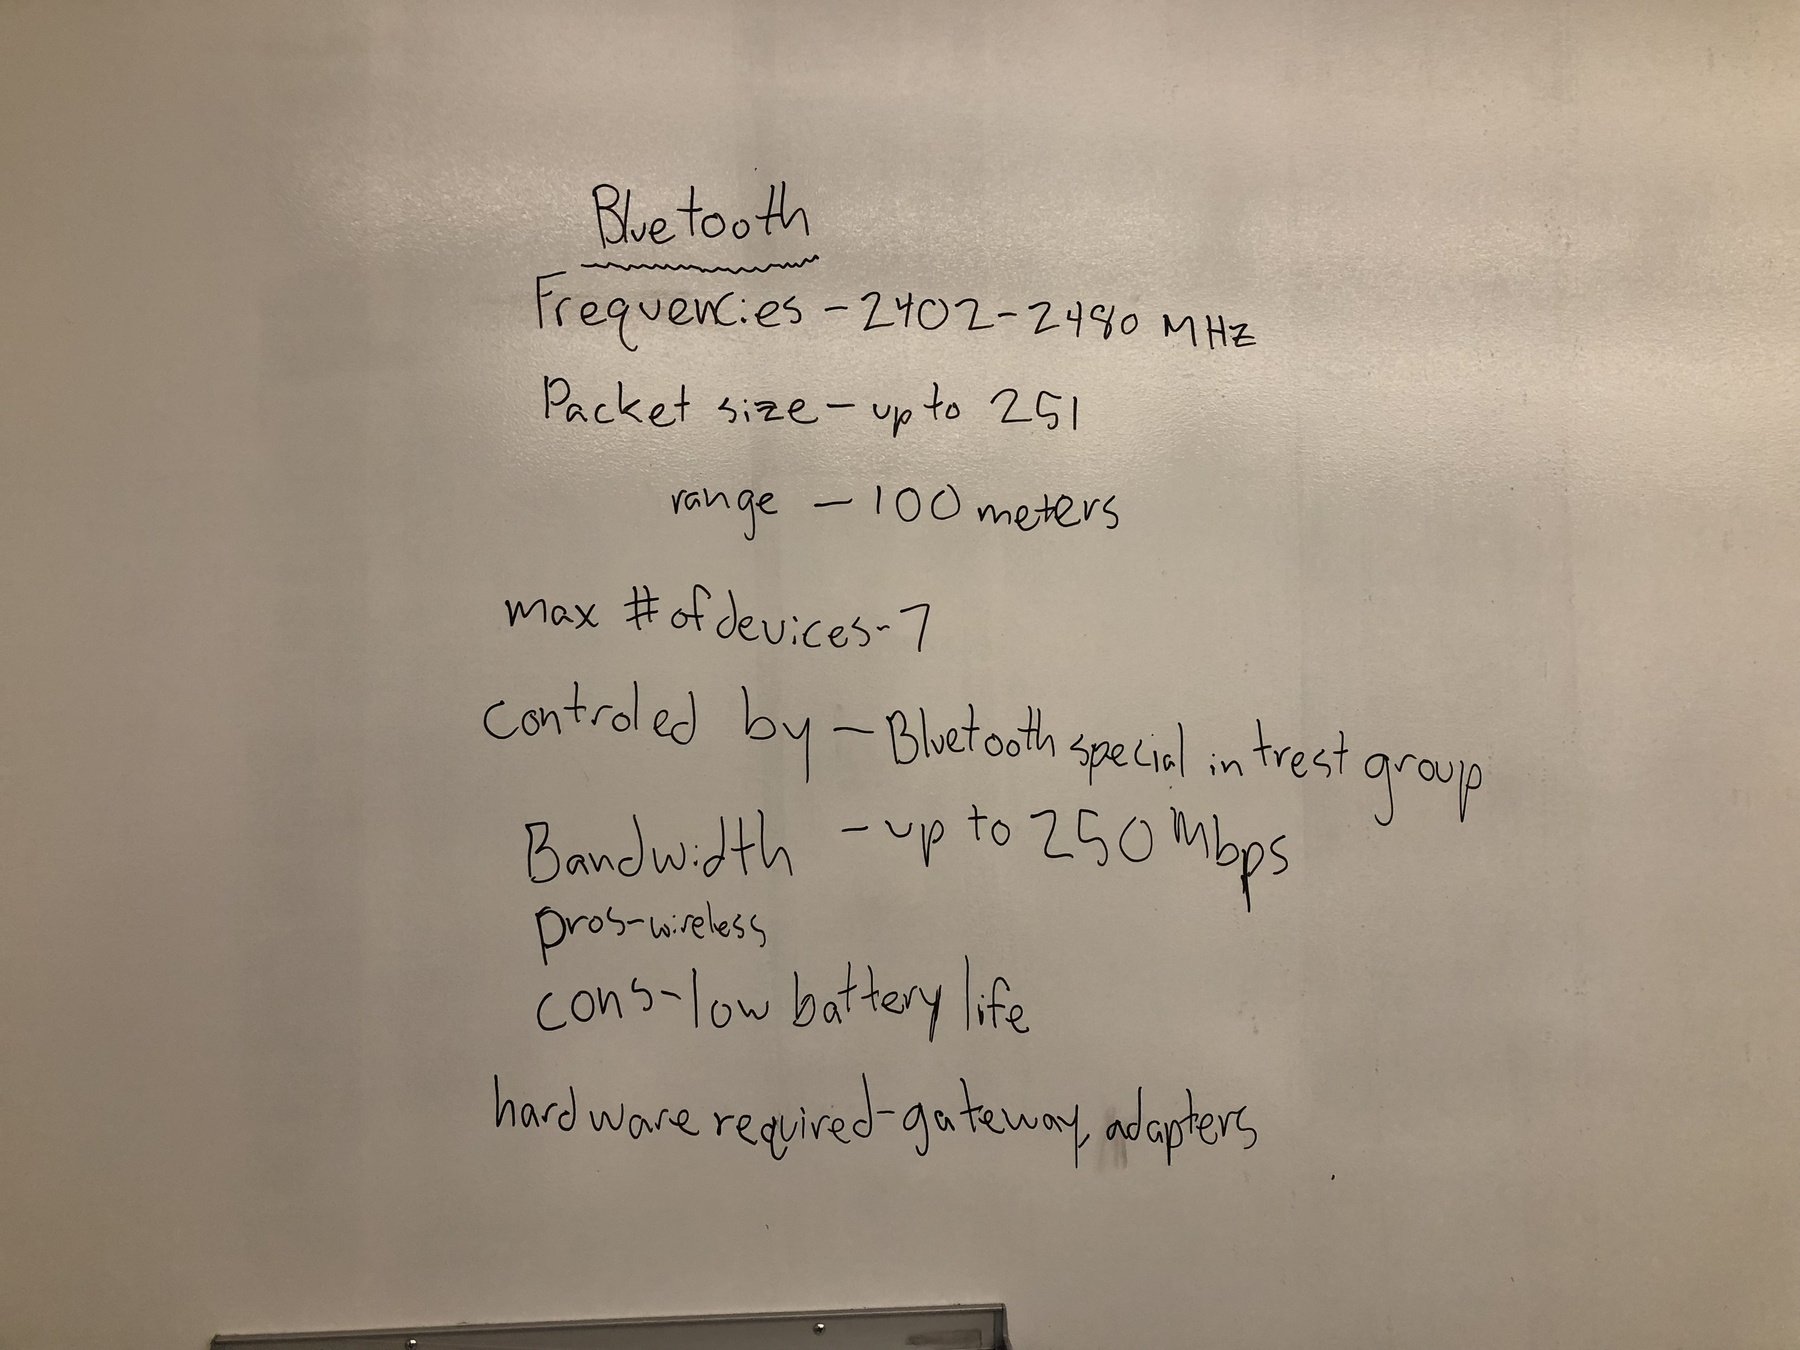 Bluetooth
Frequencies - 2402-2480 MHz
Packet size - up to 251
range - 100 meters
max # of devices - 7
controled by - Bluetooth special intrest group
Bandwidth - up to 250 Mbps
pros - wireless
cons - low battery life
hardware required - gateway, adapters